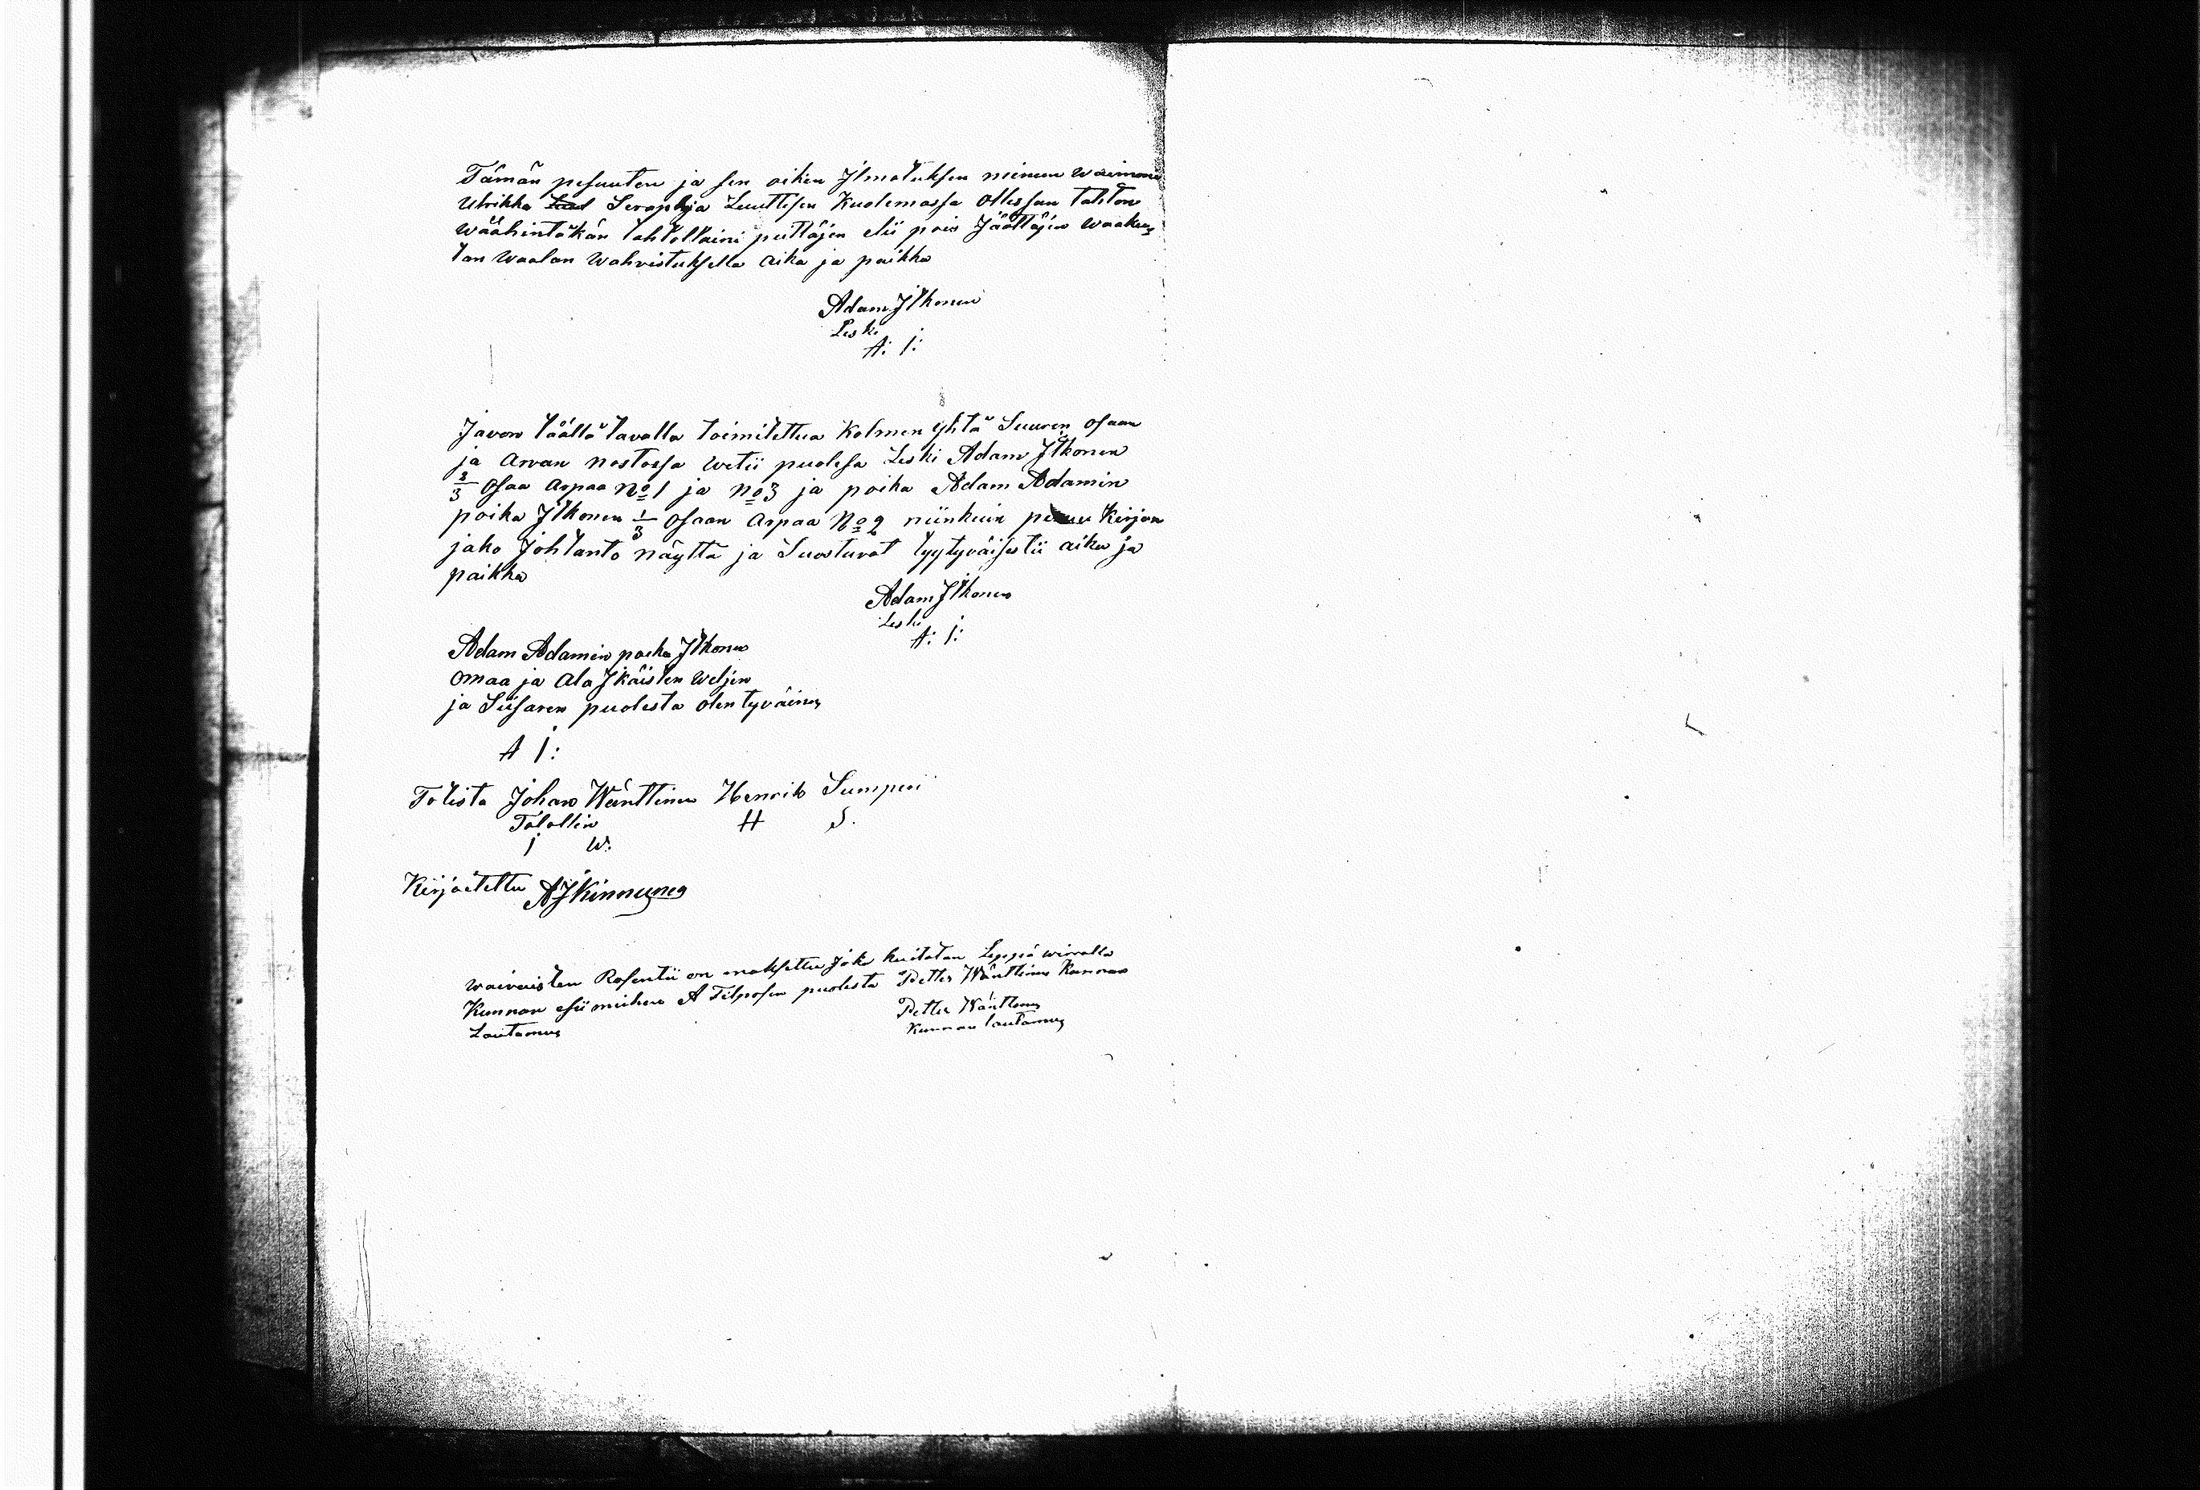 Tämän pesuuten ja sen oiken Jlmotuksen minun waimoni
Ulrikka Seraphja Luuttisen Kuolemassa Ollessan tahton
wäähintäkän tahtollaini puttäjen eli pois Jäättäjen waakuu
tan Waalan Wahvistuksella aika ja paikka
Adam Jtkonen
Leski
A: I:
Javon täällä tavalla toimitettua Kolmen yhtä Suuren osaan
ja Arvan nostossa wetii puolesa Leski Adam Jtkonen
2/3 Osaa Arpaa No 1 ja No 3 ja poika Adam Adamin
poika Jtkonen 1/3 Osaan Arpaa No 2 niinkuin Kirjan
jako Johtanto näyttä ja Suostuvat tyytyväisestii aika ja
paikka
Adam Jtkonen
Leski
A: I:
Adam Adamin poika Jtkonen
Omaa ja Ala Jkäisten weljen
ja Siisaren puolesta olen tyväinen
A I:
Totista Johan Wänttinen Henrik Sumpen
Talollin H S.
J W:
Kirjoitettu A J Kinnunen
waivaisten Rosentii on maksettu Joka kuitatan Leppä wirralla
Kunnan esiimiehen A Tilposen puolesta Petter Wänttinen Kunnan
Lautamies
Petter Wänttinen
Kunnan lautamies